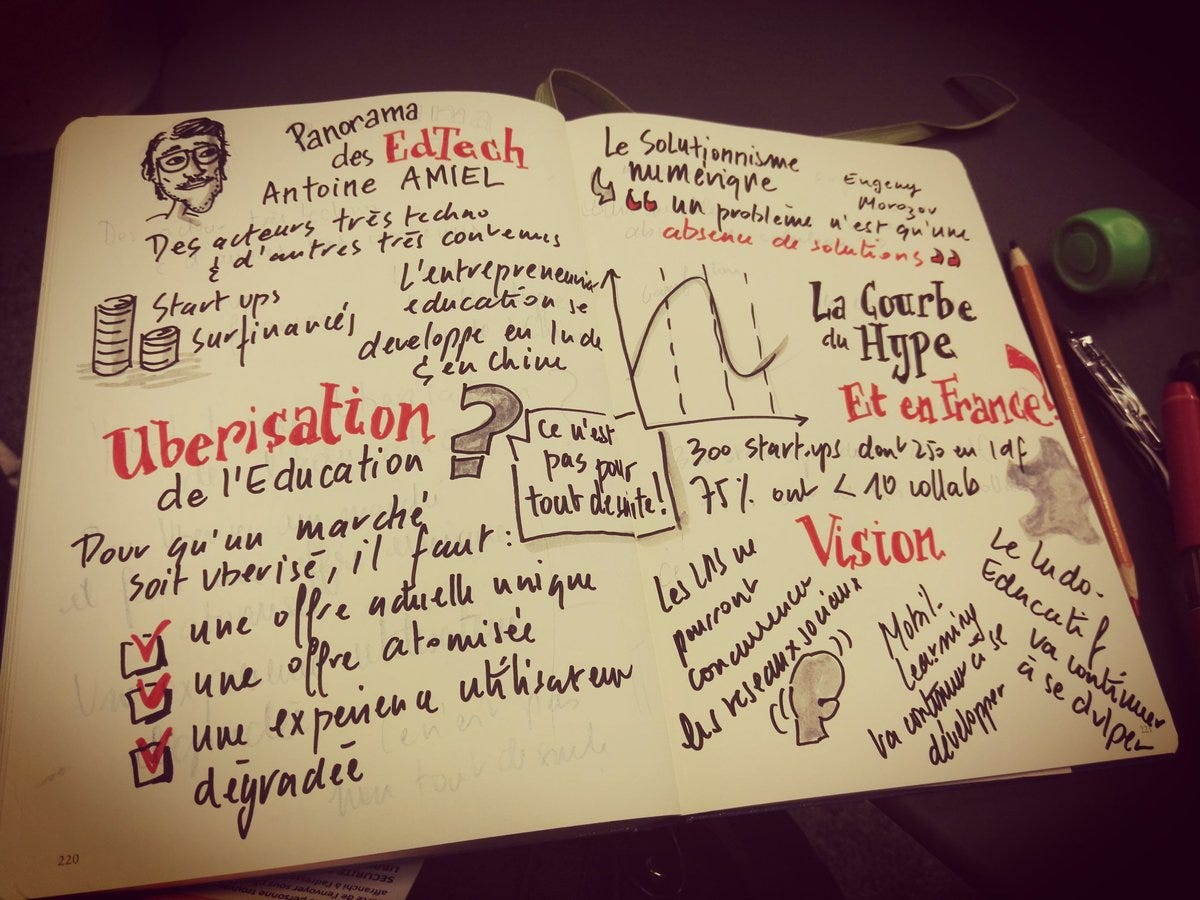 Panorama
des EdTech
Antoine AMIEL
Des acteurs très techno
& d'autres très contenus
Start ups
surfinancés
L'entrepreneuriat
education se
developpe en Inde
& en Chine
Uberisation ?
de l'Education
Ce n'est
pas pour
tout de suite!
Pour qu'un marché
soit uberisé, il faut :
une offre actuelle unique
une offre atomisée
une experience utilisateur
dégradée
220
Le Solutionnisme
numérique
Evgeny
Morozov
un problème n'est qu'une
absence de solutions
La Courbe
du Hype
Et en France?
300 start.ups dont 250 en Idf
75% ont < 10 collab
Vision
Les LMS ne
pourront
concurrencer
les reseaux sociaux
Mobil.
Learning
va continuer à se
développer
Le ludo-
Educatif
va continuer
à se dvlper